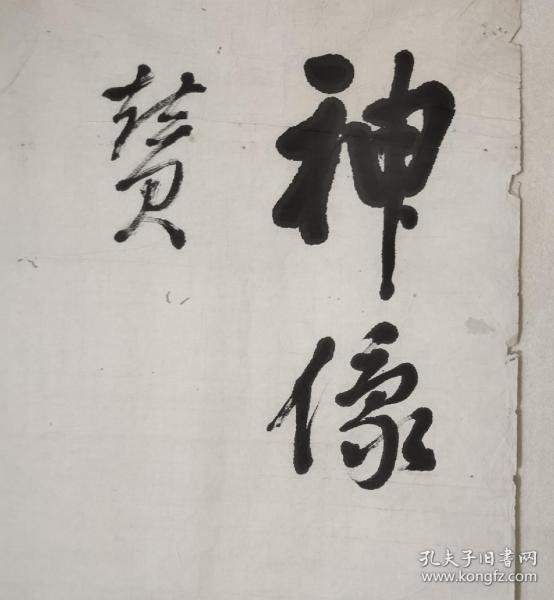 神像
赞
孔夫子旧书网
www.kongfz.com